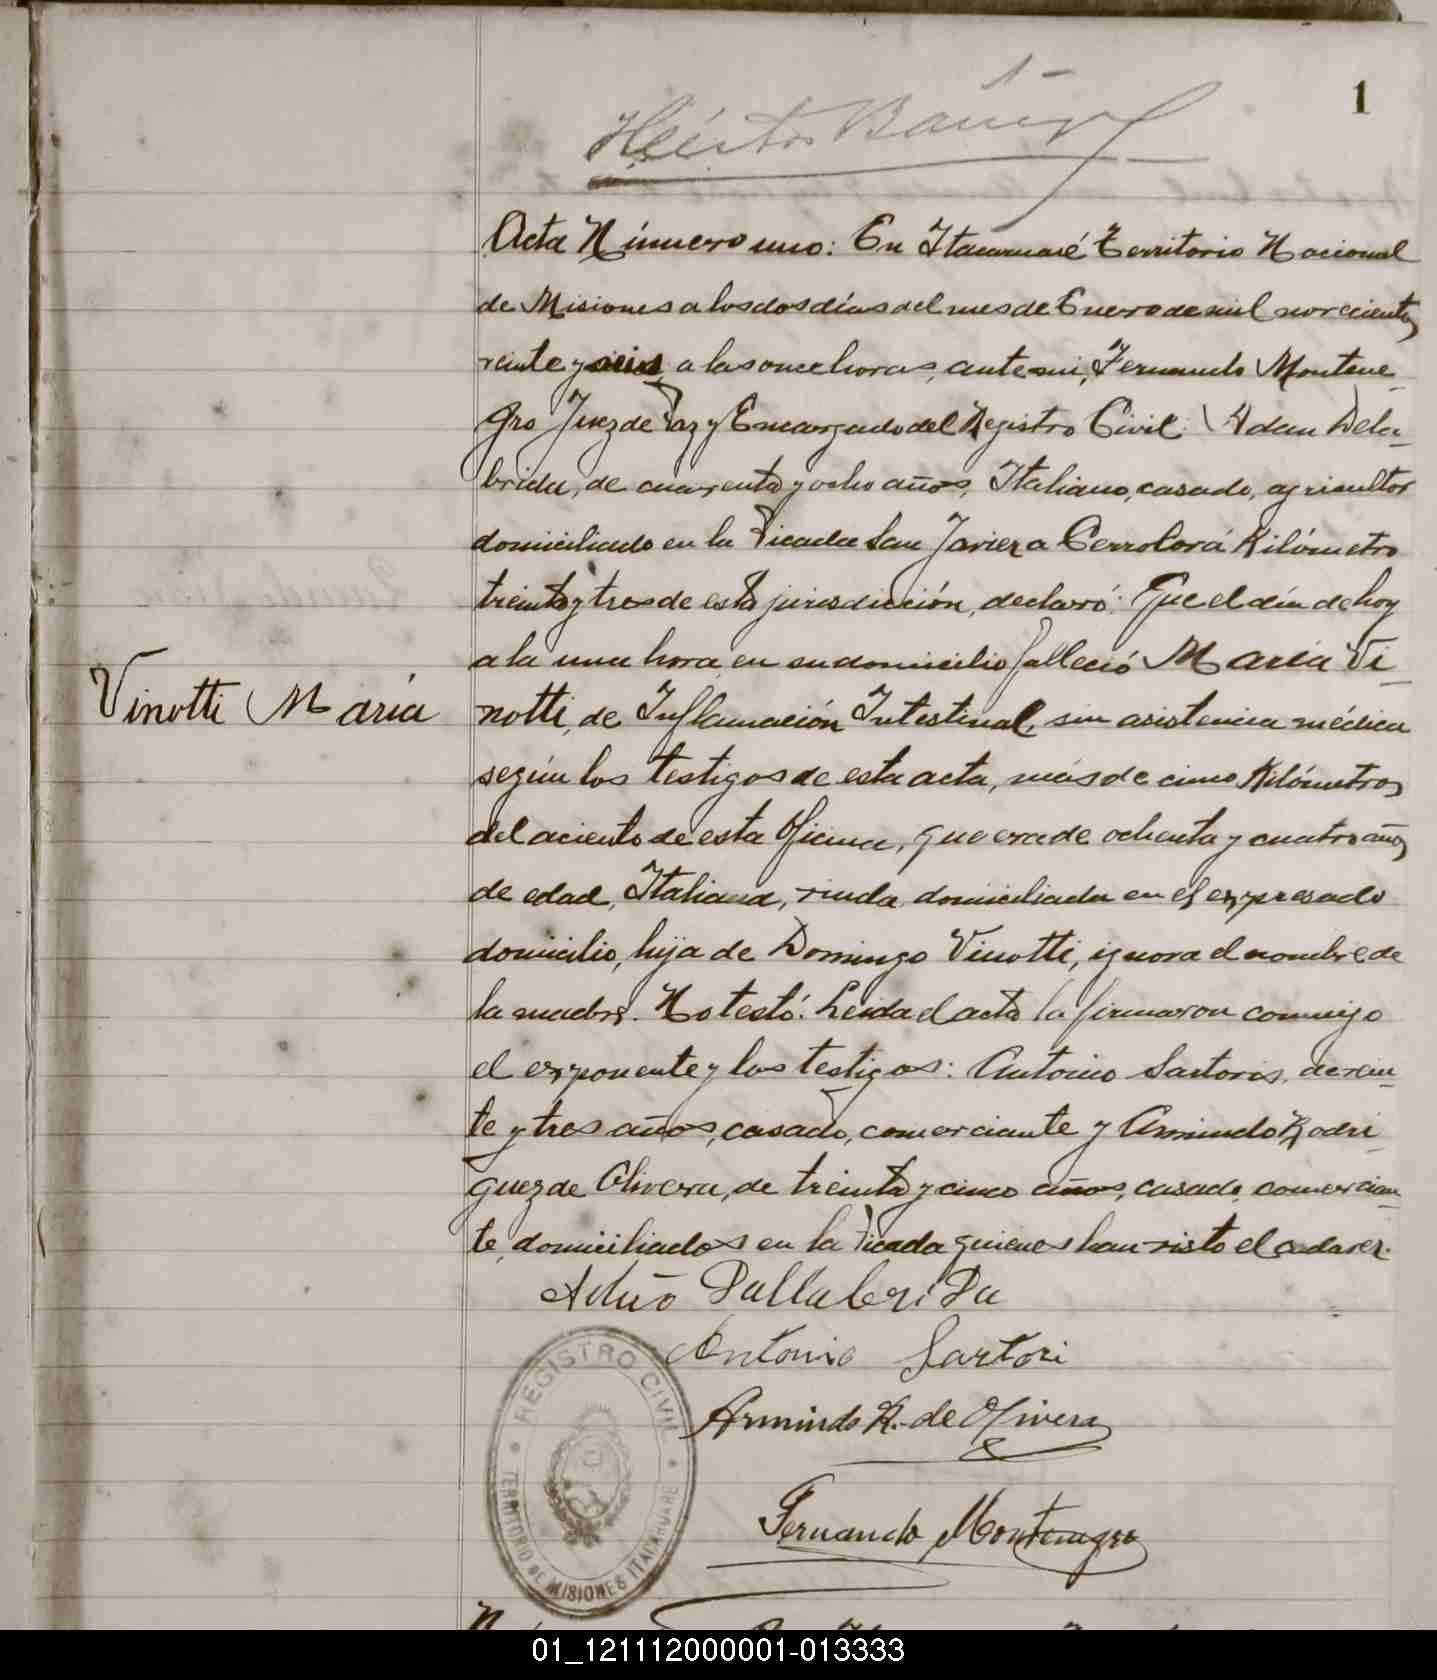 1
Héctor
Acta Número uno: En Itacaruaré Territorio Nacional
de Misiones a los dos días del mes de Enero de mil novecientos
veinte y seis, a las once horas, ante mi, Fernando Montene-
gro Juez de Paz y Encargado del Registro Civil: Adan Dela-
brida, de cuarenta y ocho años, Italiano, casado, agricultor
domiciliado en la Picada San Javier a Cerro Corá Kilómetro
treinta y tres de esta jurisdicción, declaró: Que el día de hoy
a la una hora en su domicilio falleció María Vi-
Vinotti María
notti, de Inflamación Intestinal, sin asistencia médica
según los testigos de esta acta, más de cinco Kilómetros
del aciento de esta Oficina, que era de ochenta y cuatro años
de edad, Italiana, viuda, domiciliada en el expresado
domicilio, hija de Domingo Vinotti, ignora el nombre de
la madre. No testó. Leida el acta la firmaron conmigo
el exponente y los testigos: Antonio Sartoris, de vein-
te y tres años, casado, comerciante y Armindo Rodri-
guez de Olivera, de treinta y cinco años, casado, comercian-
te, domiciliados en la Picada quienes han visto el cadaver.
Dallabrida
Antonio Sartori
Armindo R. de Olivera
Fernando Montenegro
REGISTRO CIVIL
TERRITORIO DE MISIONES ITACARUARE
01_121112000001-013333